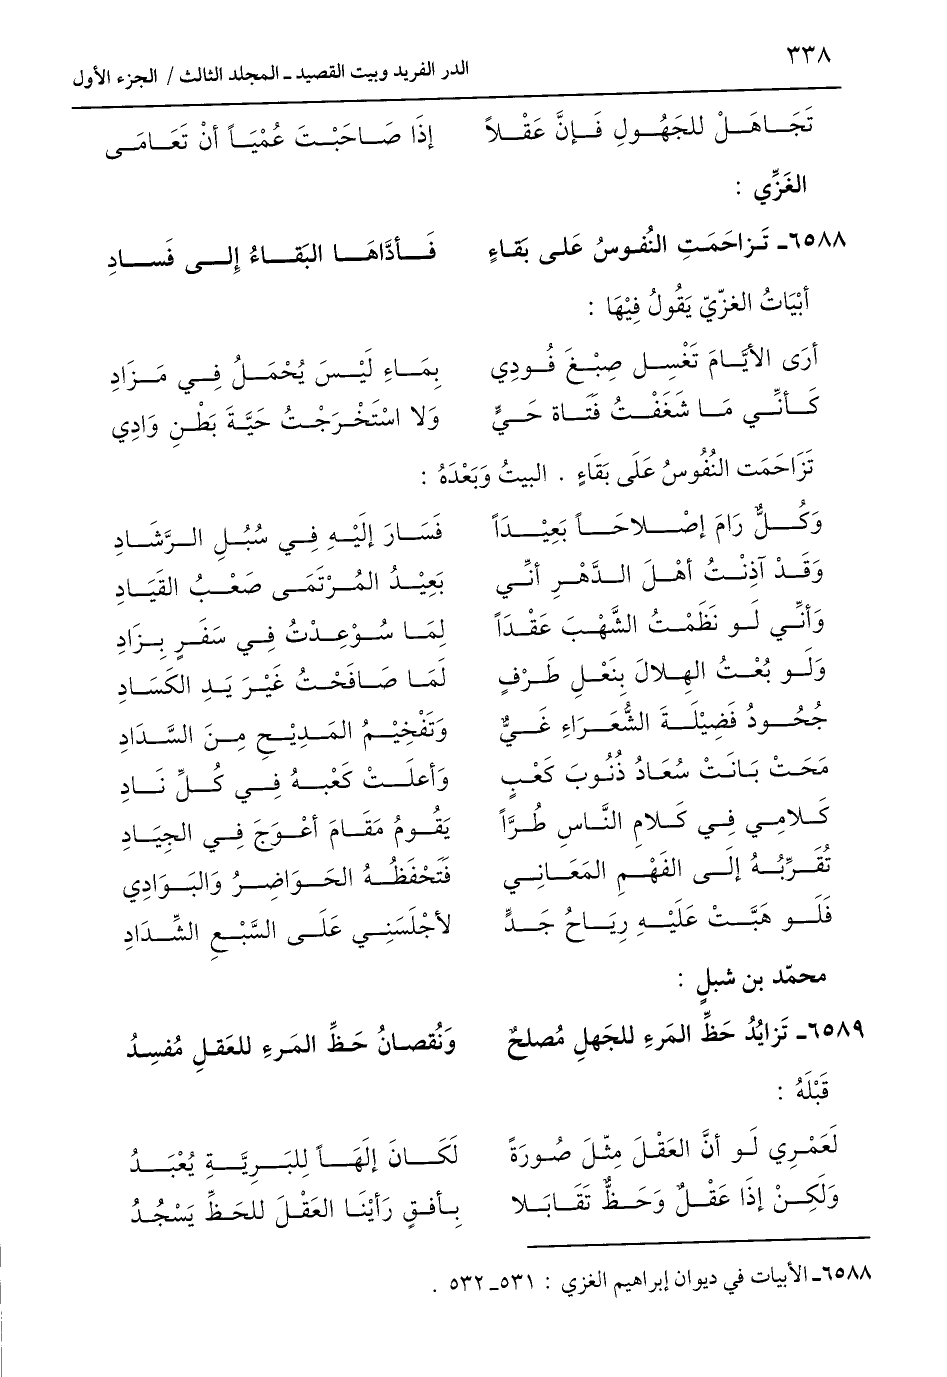 ٣٣٨
الدر الفريد وبيت القصيد ـ المجلد الثالث / الجزء الأول
تَجَـاهَـلْ للجَهُـولِ فَـإنَّ عَقْـلاً إذَا صَـاحَبْـتَ عُمْيَـاً أنْ تَعَـامَـى
الغَزِّي :
٦٥٨٨ـ تَـزاحَمَـتِ النُّفُـوسُ عَلـى بَقَـاءٍ فَـأدَّاهَـا البَقَـاءُ إلـى فَسَـادِ
أبْيَاتُ الغزّيّ يَقُولُ فِيْهَا :
أرَى الأيَّـامَ تَغْسِـل صِبْـغَ فُـودِي بِمَـاءٍ لَيْـسَ يُحْمَـلُ فِـي مَـزَادِ
كَـأنِّـي مَـا شَغَفْـتُ فَتَـاةَ حَـيٍّ وَلا اسْتَخْـرَجْـتُ حَيَّـةَ بَطْـنِ وَادِي
تَزَاحَمَت النُّفُوسُ عَلَى بَقَاءٍ . البيتُ وَبَعْدَهُ :
وَكُـلٌّ رَامَ إصْـلاحَـاً بَعِيْـدَاً فَسَـارَ إلَيْـهِ فِـي سُبُـلِ الـرَّشَـادِ
وَقَـدْ آذَنْـتُ أهْـلَ الـدَّهْـرِ أنِّـي بَعِيْـدُ المُـرْتَمَـى صَعْـبُ القَيَـادِ
وَأنِّـي لَـو نَظَمْـتُ الشُّهْـبَ عَقْـدَاً لِمَـا سُـوْعِـدْتُ فِـي سَفَـرٍ بِـزَادِ
وَلَـو بُعْـتُ الهِـلاَلَ بِنَعْـلِ طَـرْفٍ لَمَـا صَـافَحْـتُ غَيْـرَ يَـدِ الكَسَـادِ
جُحُـودُ فَضِيْلَـةَ الشُّعَـرَاءِ غَـيٌّ وَتَفْخِيْـمُ المَـدِيْـحِ مِـنَ السَّـدَادِ
مَحَـتْ بَـانَـتْ سُعَـادُ ذُنُـوبَ كَعْـبٍ وَأعلَـتْ كَعْبَـهُ فِـي كُـلِّ نَـادِ
كَـلامِـي فِـي كَـلامِ النَّـاسِ طُـرَّاً يَقُـومُ مَقَـامَ أعْـوَجَ فِـي الجِيَـادِ
تُقَـرِّبُـهُ إلَـى الفَهْـمِ المَعَـانِـي فَتَحْفَظُـهُ الحَـوَاضِـرُ وَالبَـوَادِي
فَلَـو هَبَّـتْ عَلَيْـهِ رِيَـاحُ جَـدٍّ لأجْلَسَنِـي عَلَـى السَّبْـعِ الشِّـدَادِ
محمّد بن شبلٍ :
٦٥٨٩ـ تَزايُدُ حَظِّ المَرءِ للجَهلِ مُصلحٌ وَنُقصـانُ حَـظِّ المَـرءِ للعَقـلِ مُفسِـدُ
قَبْلَهُ :
لَعَمْـرِي لَـو أنَّ العَقْـلَ مِثْـلَ صُـورَةً لَكَـانَ إلَهَـاً لِلبَـرِيَّـةِ يُعْبَـدُ
وَلَكِـنْ إذَا عَقْـلٌ وَحَـظٌّ تَقَـابَـلا بِـأفـقٍ رَأيْنَـا العَقْـلَ للحَـظِّ يَسْجُـدُ
٦٥٨٨ـ الأبيات في ديوان إبراهيم الغزي : ٥٣١ـ٥٣٢ .